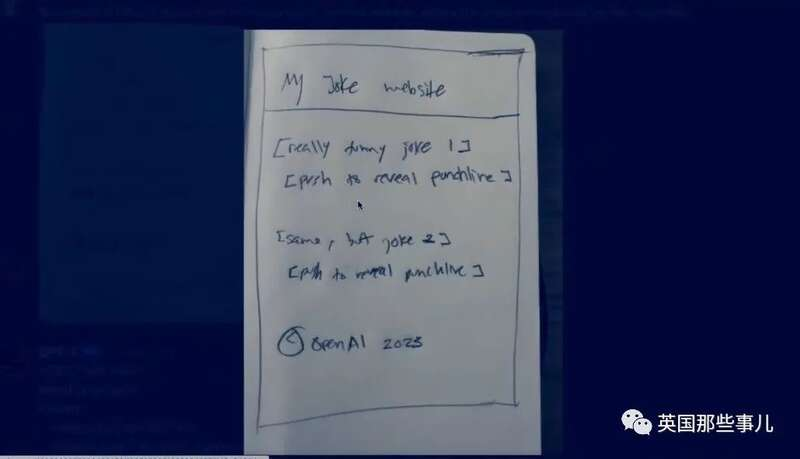 My Joke website
[really funny joke 1]
[push to reveal punchline]
[same, but joke 2]
[push to reveal punchline]
© OpenAI 2023
英国那些事儿